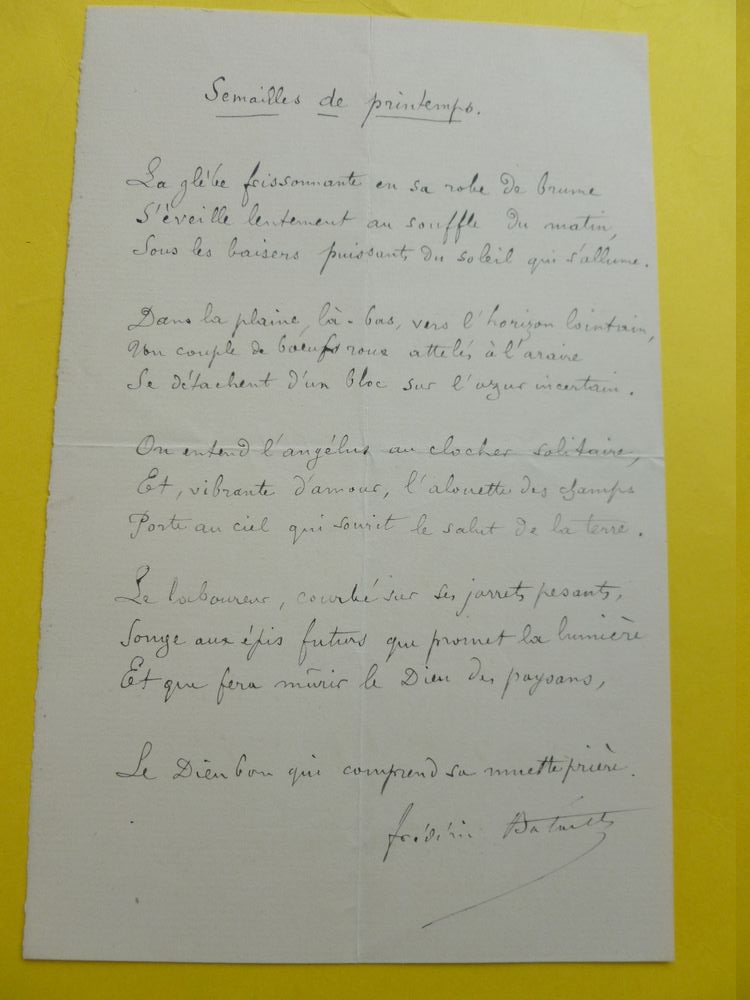 Semailles de printemps.
La glèbe frissonnante en sa robe de brume
S'éveille lentement au souffle du matin,
Sous les baisers puissants du soleil qui s'allume.
Dans la plaine, là-bas, vers l'horizon lointain,
Un couple de bœufs roux attelés à l'araire
Se détachent d'un bloc sur l'azur incertain.
On entend l'angélus au clocher solitaire,
Et, vibrante d'amour, l'alouette des champs
Porte au ciel qui sourit le salut de la terre.
Le laboureur, courbé sur ses jarrets pesants,
Songe aux épis futurs que promet la lumière
Et que fera mûrir le Dieu des paysans,
Le Dieu bon qui comprend sa muette prière.
Frédéric Bataille